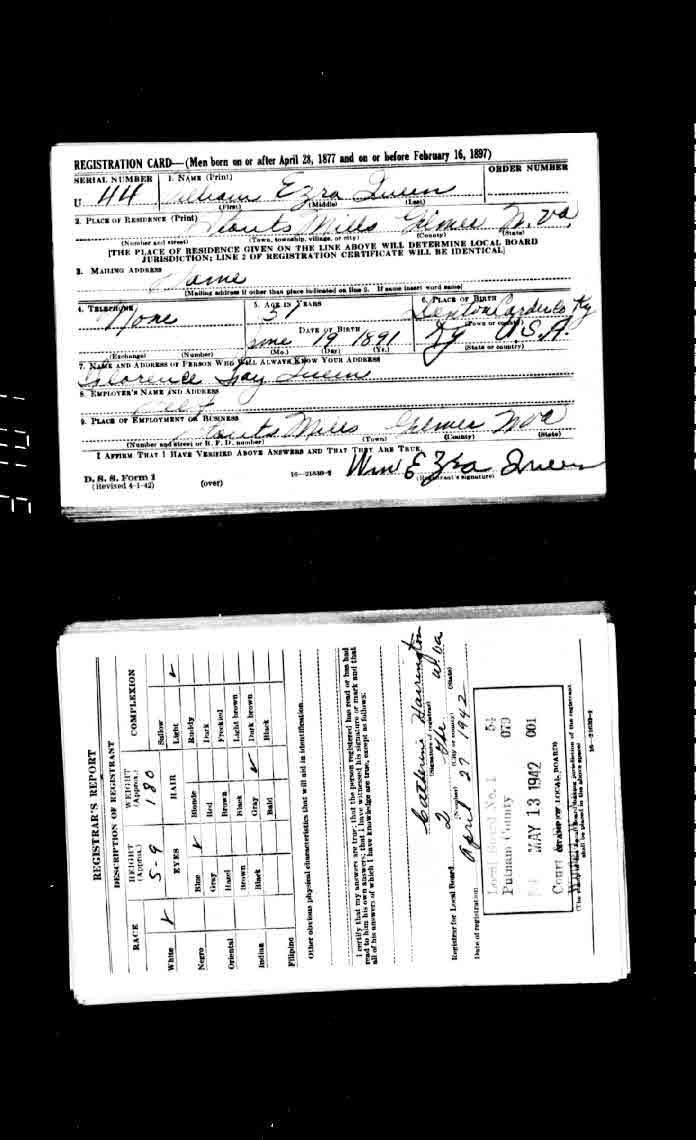 REGISTRATION CARD—(Men born on or after April 28, 1877 and on or before February 16, 1897)
SERIAL NUMBER 1. NAME (Print) ORDER NUMBER
U 44 William Ezra Queen
(First) (Middle) (Last)
2. PLACE OF RESIDENCE (Print)
Stouts Mills Gilmer W. Va.
(Number and street) (Town, township, village, or city) (County) (State)
[THE PLACE OF RESIDENCE GIVEN ON THE LINE ABOVE WILL DETERMINE LOCAL BOARD
JURISDICTION; LINE 2 OF REGISTRATION CERTIFICATE WILL BE IDENTICAL]
3. MAILING ADDRESS
Same
[Mailing address if other than place indicated on line 2. If same insert word same]
4. TELEPHONE 5. AGE IN YEARS 6. PLACE OF BIRTH
None Denton Carder Co Ky
DATE OF BIRTH (Town or county)
June 19 1891 Ky U.S.A.
(Exchange) (Number) (Mo.) (Day) (Yr.) (State or country)
7. NAME AND ADDRESS OF PERSON WHO WILL ALWAYS KNOW YOUR ADDRESS
Florence Fay Queen
8. EMPLOYER'S NAME AND ADDRESS
Self
9. PLACE OF EMPLOYMENT OR BUSINESS
Stouts Mills Gilmer W Va
(Number and street or R. F. D. number) (Town) (County) (State)
I AFFIRM THAT I HAVE VERIFIED ABOVE ANSWERS AND THAT THEY ARE TRUE.
Wm Ezra Queen
D. S. S. Form 1 16—21630-2 (Registrant's signature)
(Revised 4-1-42) (over)
REGISTRAR'S REPORT
DESCRIPTION OF REGISTRANT
RACE HEIGHT (Approx.) WEIGHT (Approx.) COMPLEXION
5-9 180 Sallow
White ✓ EYES HAIR Light ✓
Negro Blue ✓ Blonde Ruddy
Gray Red Dark
Oriental Hazel Brown Freckled
Brown Black Light brown
Indian Black Gray ✓ Dark brown
Bald Black
Filipino
Other obvious physical characteristics that will aid in identification
I certify that my answers are true; that the person registered has read or has had
read to him his own answers; that I have witnessed his signature or mark and that
all of his answers of which I have knowledge are true, except as follows:
Catherine Harrington
(Signature of registrar)
Registrar for Local Board 2 W. Va
(Number) (City or county) (State)
Date of registration April 27 1942
Local Board No. 1 54
Putnam County 079
MAY 13 1942 001
Court
(STAMP OF LOCAL BOARD)
(The stamp of the Local Board having jurisdiction of the registrant
shall be placed in the above space)
16—21630-1